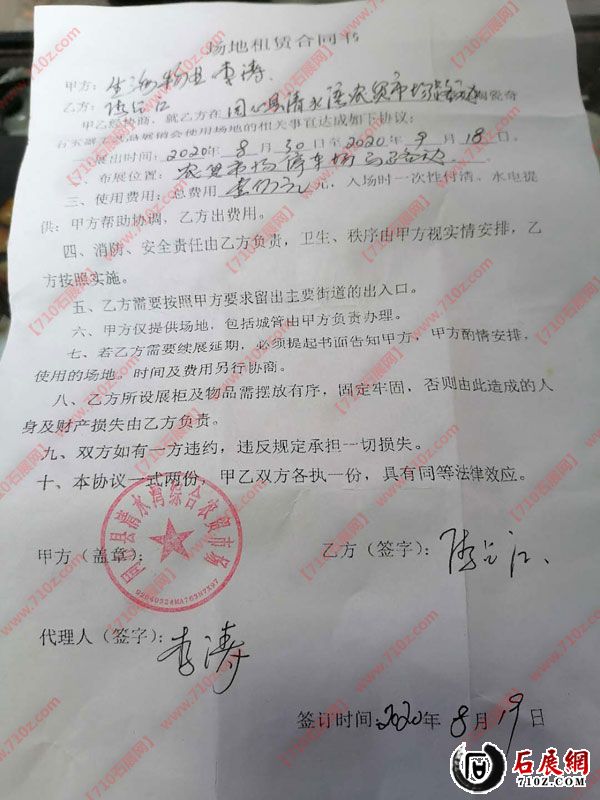 场地租赁合同书
甲方：生海物业李涛
乙方：
甲乙经协商，就乙方在同心县清水湾农贸市场 陶瓷奇
石玉器 品展销会使用场地的相关事宜达成如下协议：
一、展出时间：2020年8月30日至2020年9月18日
二、布展位置：农贸市场停车场
三、使用费用：总费用 元，入场时一次性付清。水电提
供：甲方帮助协调，乙方出费用。
四、消防、安全责任由乙方负责，卫生、秩序由甲方视实情安排，乙
方按照实施。
五、乙方需要按照甲方要求留出主要街道的出入口。
六、甲方仅提供场地，包括城管由甲方负责办理。
七、若乙方需要续展延期，必须提起书面告知甲方，甲方酌情安排，
使用的场地。时间及费用另行协商。
八、乙方所设展柜及物品需摆放有序，固定牢固，否则由此造成的人
身及财产损失由乙方负责。
九、双方如有一方违约，违反规定承担一切损失。
十、本协议一式两份，甲乙双方各执一份，具有同等法律效应。
县清水湾综合农贸市场
甲方（盖章）：
乙方（签字）：
代理人（签字）：李涛
签订时间：2020年8月19日
【710石展网】www.710z.com
石展網
710Z.COM